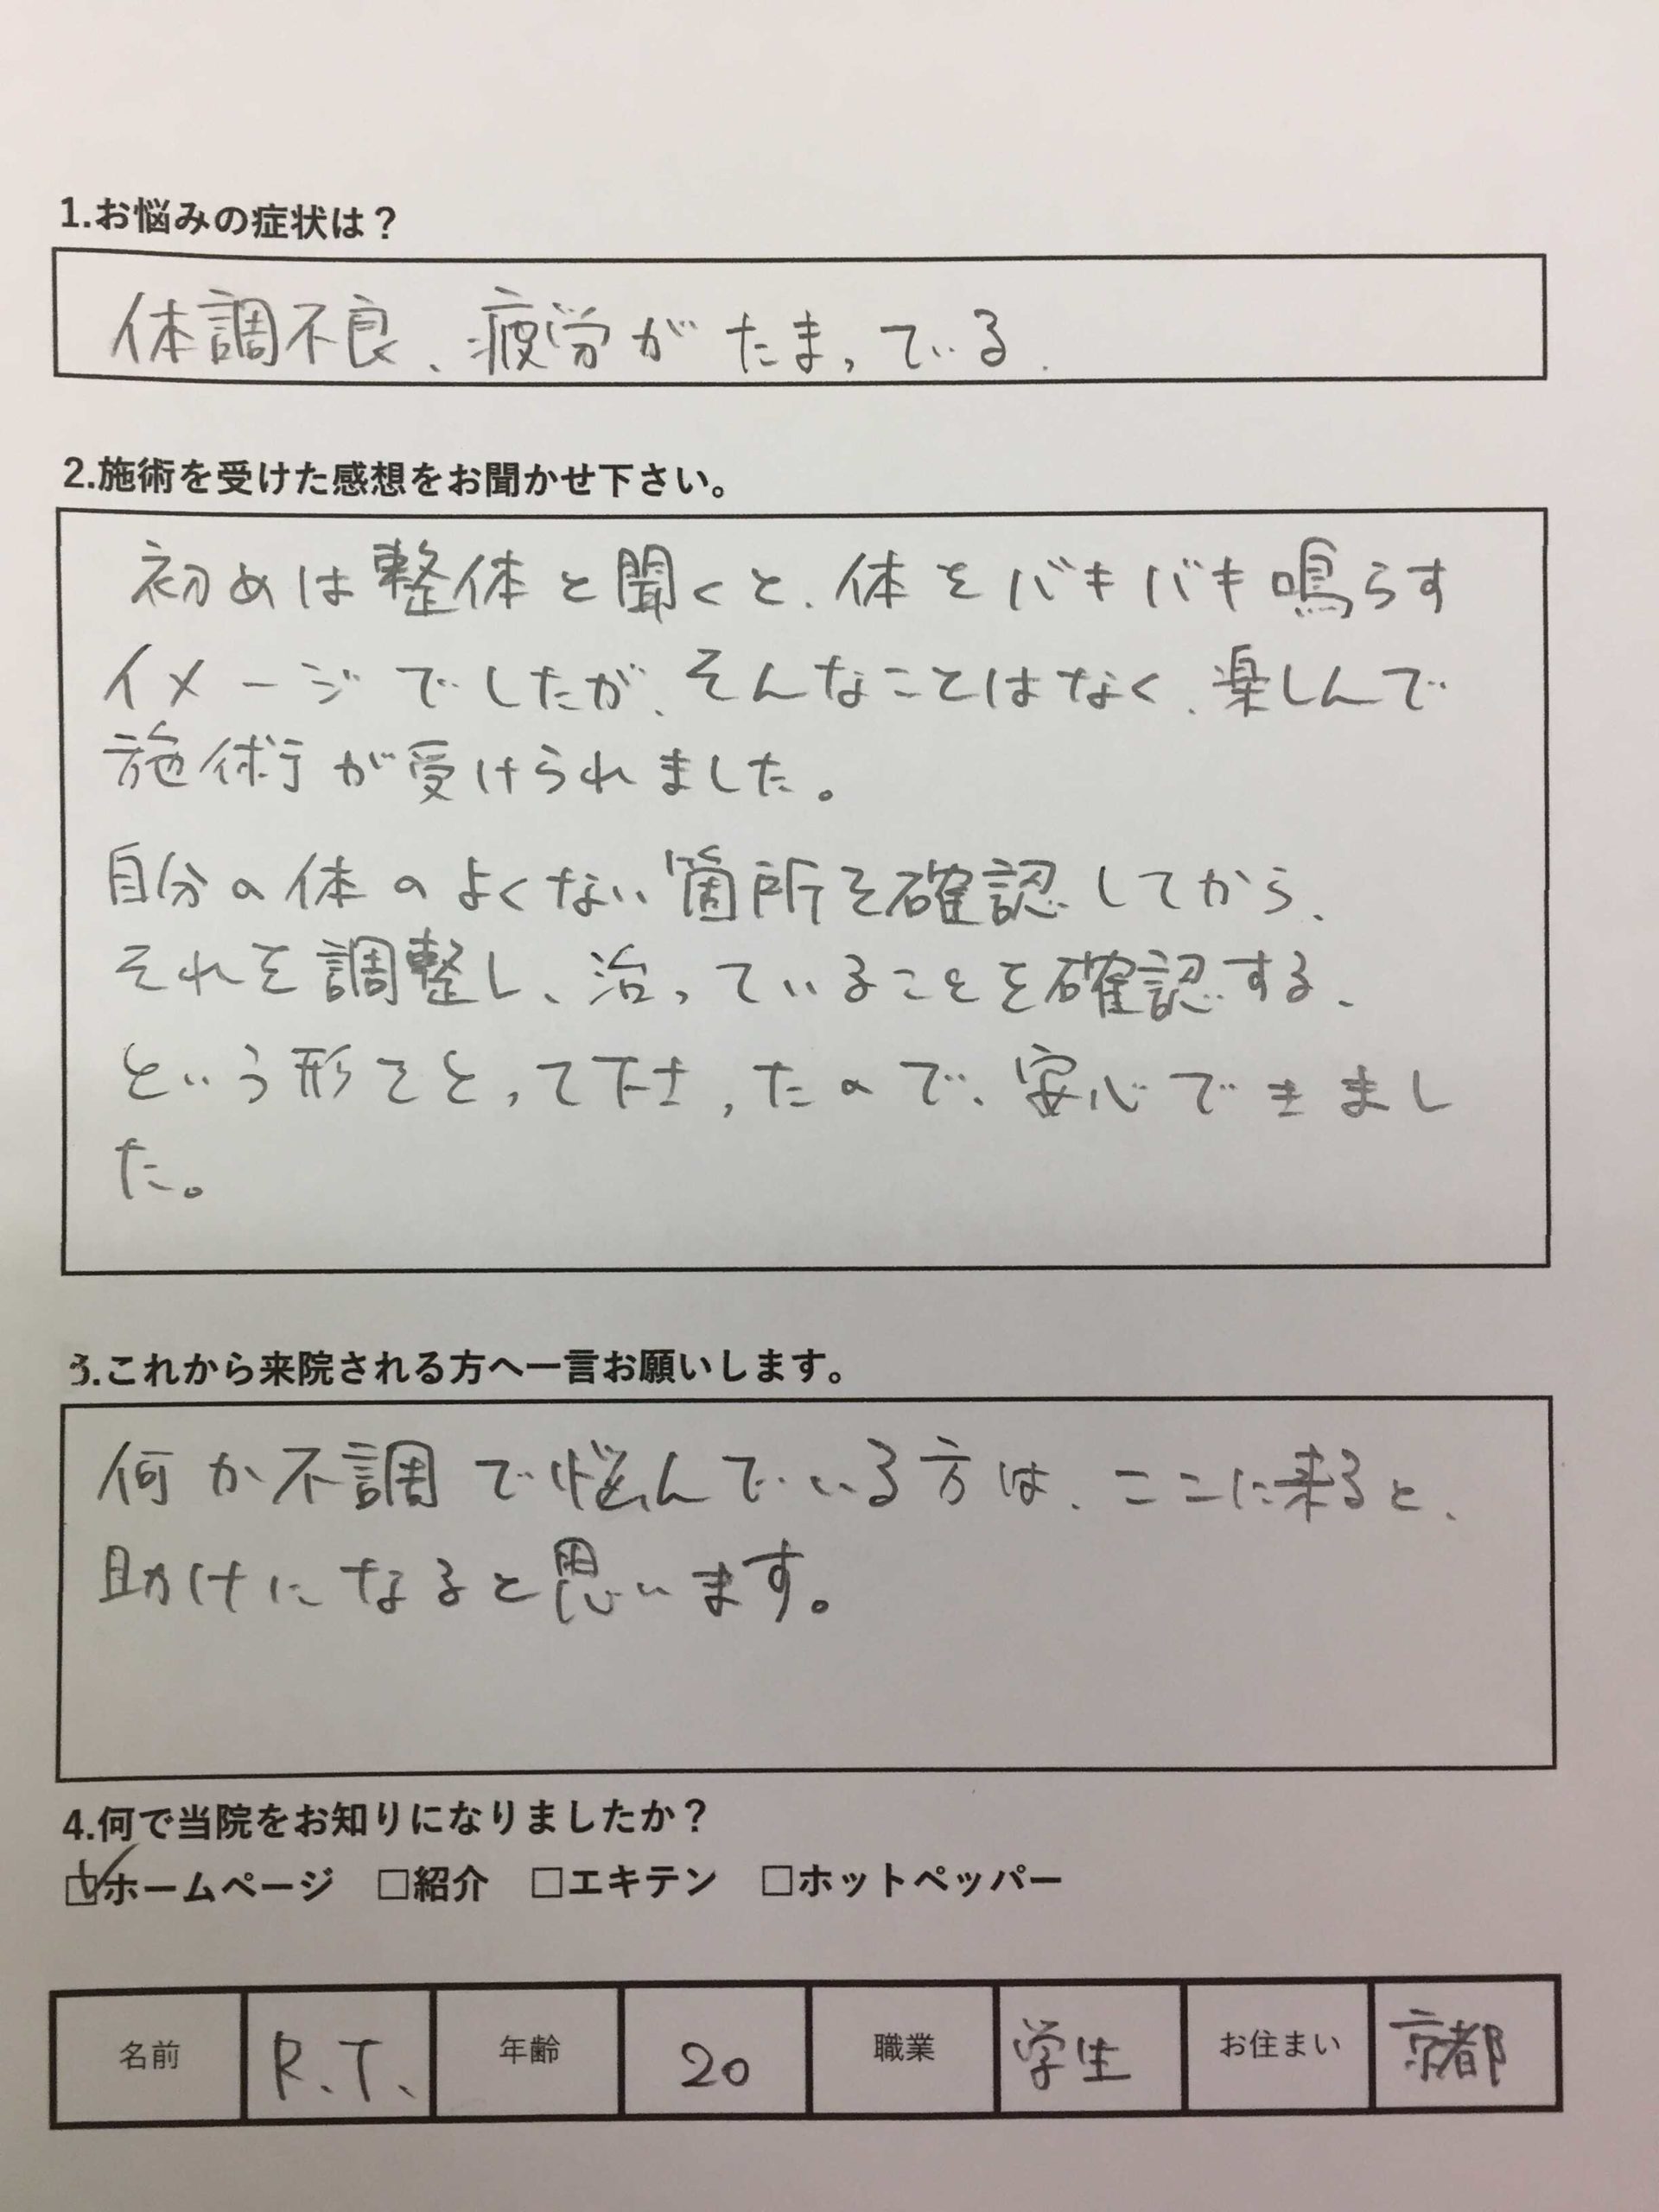 1.お悩みの症状は？
体調不良、疲労がたまっている.
2.施術を受けた感想をお聞かせ下さい。
初めは整体と聞くと、体をバキバキ鳴らす
イメージでしたが、そんなことはなく、楽しんで
施術が受けられました。
自分の体のよくない箇所を確認してから、
それを調整し、治っていることを確認する、
という形をとって下さったので、安心できまし
た。
3.これから来院される方へ一言お願いします。
何か不調で悩んでいる方は、ここに来ると、
助けになると思います。
4.何で当院をお知りになりましたか？
☑ホームページ □紹介 □エキテン □ホットペッパー
名前 R.T. 年齢 20 職業 学生 お住まい 京都